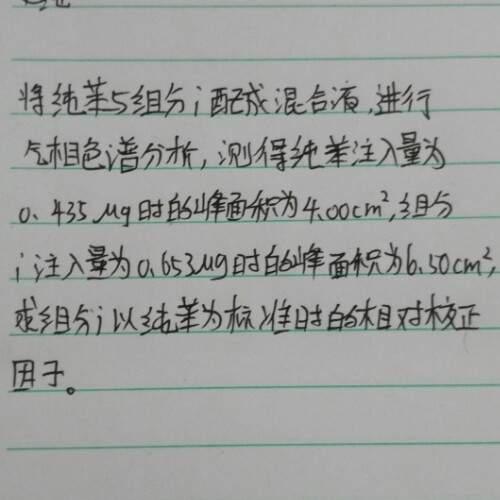 将纯苯与组分i配成混合液,进行
气相色谱分析,测得纯苯注入量为
0.435μg时的峰面积为4.00cm²,组分
i注入量为0.653μg时的峰面积为6.50cm²,
求组分i以纯苯为标准时的相对校正
因子。